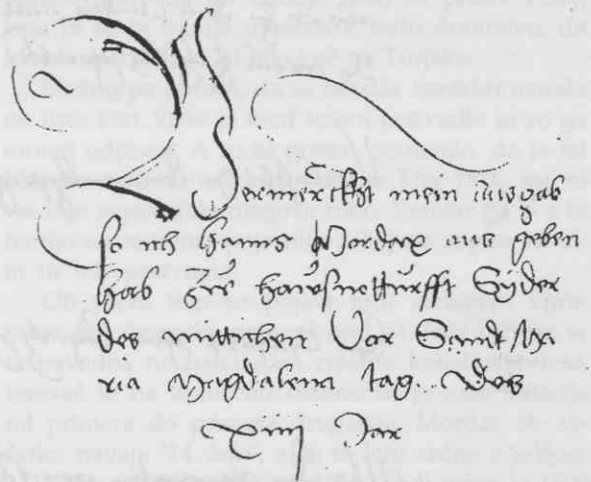 Vermerkht mein ausgab
so ich Hanns Mordax aus geben
hab Zue hawsnotturfft Syder
des Vor Sandt Ma
ria Magdalena tag. Des
Jar